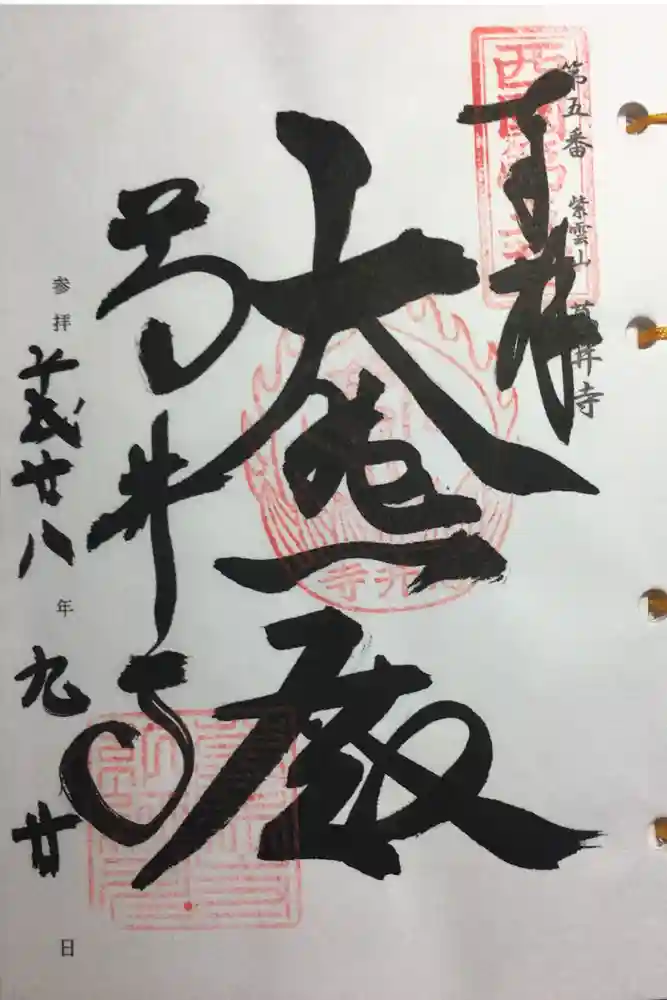 西國第五番
第五番 紫雲山 葛井寺
奉拝
大悲殿
葛井寺
参拝 平成廿八年九月廿日